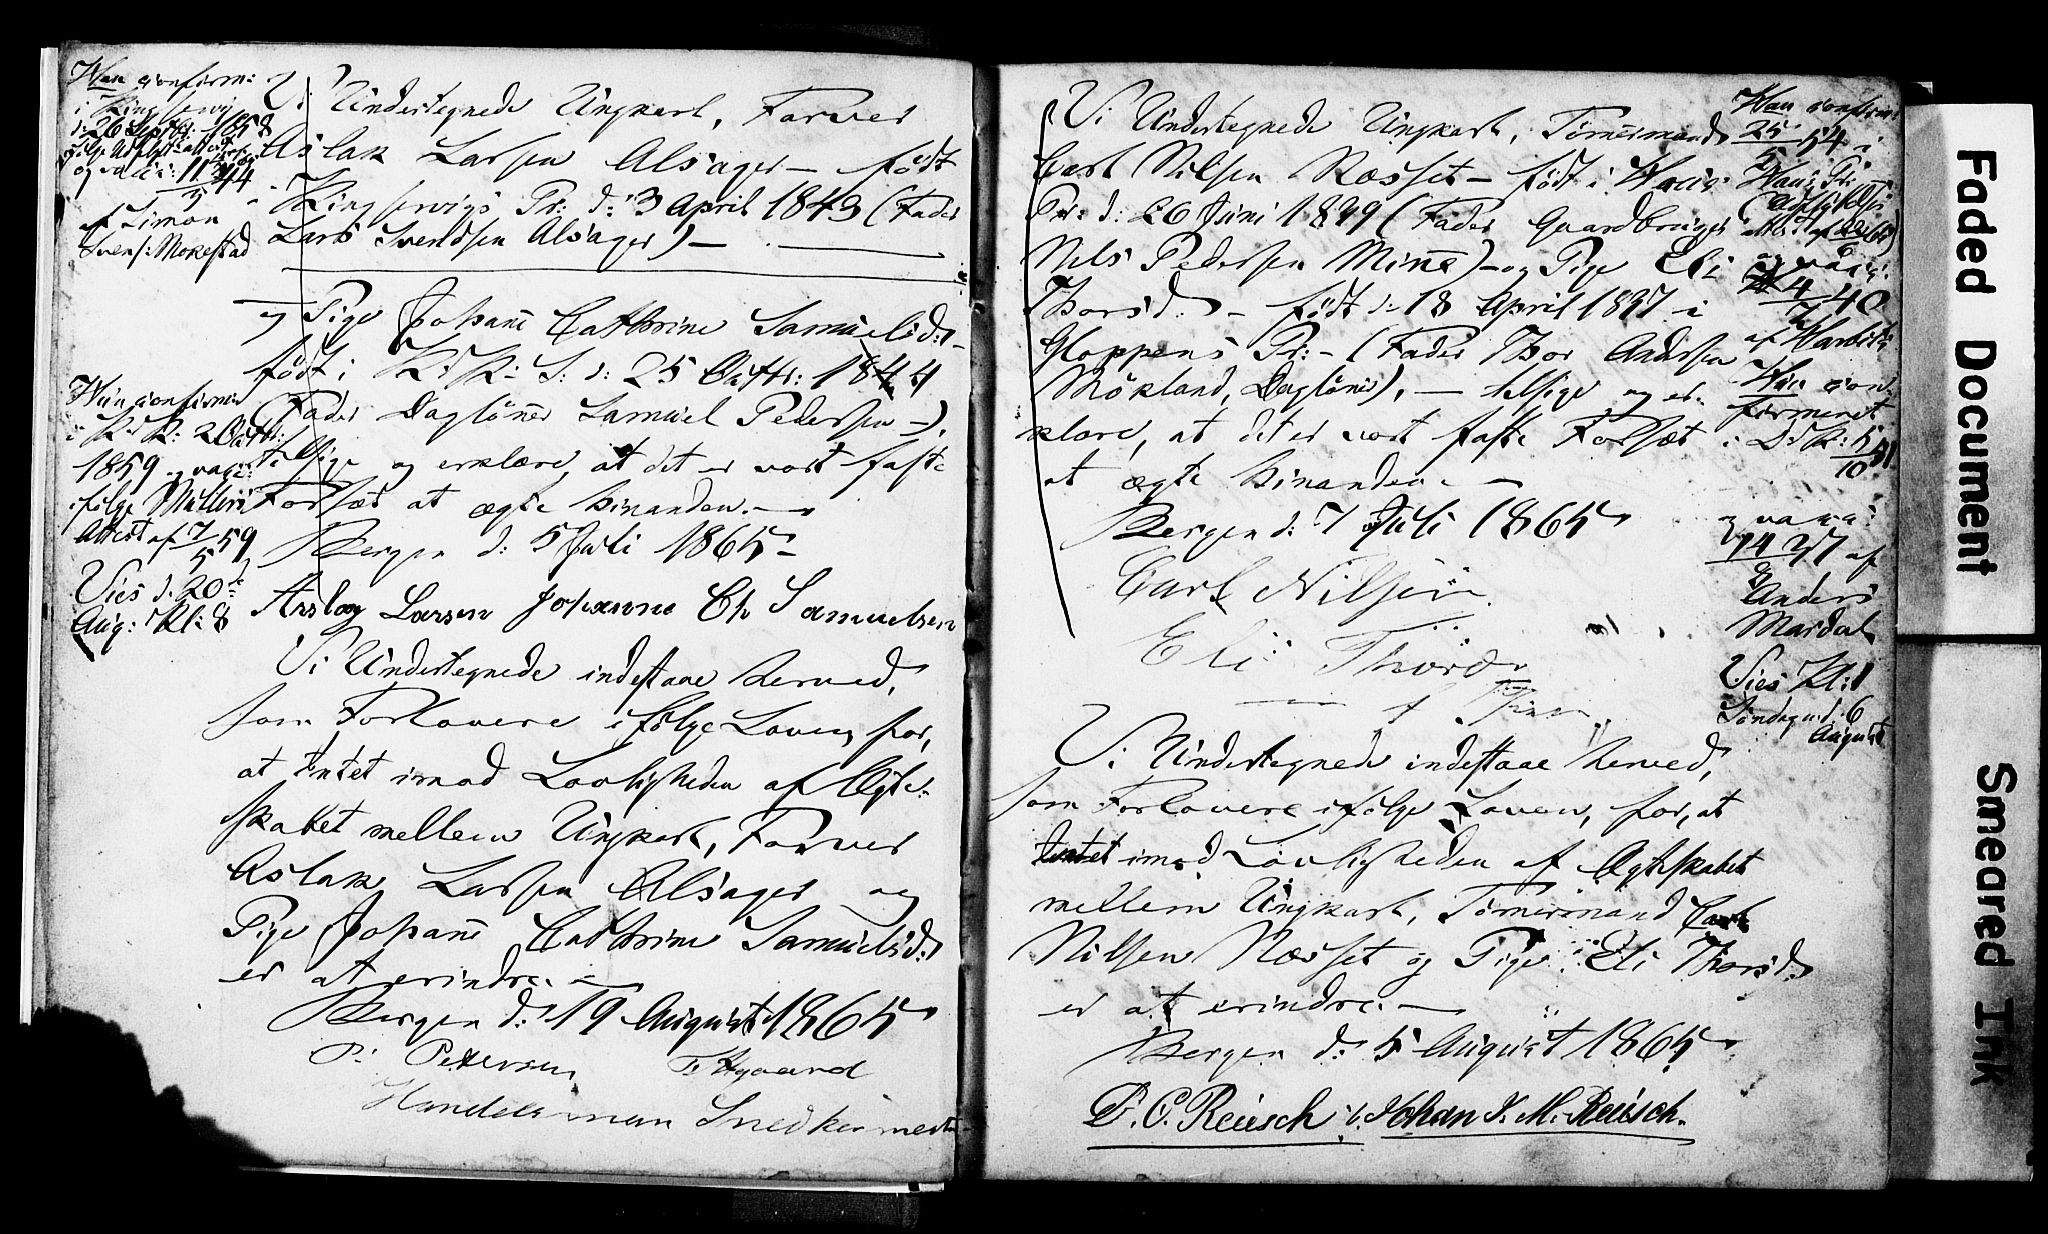 Han confirm:
i Kingservig
d: 26 Septbr: 1858
og vacc: 11/5 44
af Simon
Svens: Mokestad
Vi Undertegnede Ungkarl, Farver
Aslak Larsen Alsager – født
Kingservigs Pr: d: 3 April 1843 (Fader
Lars Svendsen Alsager) –
og Pige Johanē Cathrine Samuelsd: –
født i K: K: S: d: 25 Octbr: 1844
(Fader Daglönēr Samuel Pedersen –),
tilsige og erklære, at det er vort faste
Forsæt at ægte hinanden. –
Bergen d: 5 Juli 1865 –
Hun confirm:
i K: K: 2 Octbr:
1859 og vacc:
ifølge Müllers
Attest af 7/5 59
Vies d. 20de
Aug: Kl: 8
Arslag Larsen Johanne Ch Samuelsen
Vi Undertegnede indestaae herved,
som Forlovere ifølge Loven, for,
at Intet imod Lovligheden af Ægte-
skabet mellem Ungkarl, Farver
Aslak Larsen Alsager og
Pige Johanē Cathrine Samuelsd:
er at erindre. –
Bergen d: 19 August 1865
P. Pettersen F. Hgaard
Handelsman Snedkermester
Vi Undertegnede Ungkarl, Tömērmand
Carl Nilsen Næsset – født i Haus
Pr: d: 26 Juni 1839 (Fader Gaardbruger
Nels Pedersen Minē) – og Pige Eli
Thorsd: – født d: 18 April 1837 i
Gloppens Pr: – (Fader Thor Andersen
Mökland, Daglönēr), – tilsige og er-
klære, at det er vort faste Forsæt
at ægte hinanden. –
Bergen d: 7 Juli 1865
Carl Nilsen
Eli Thordr
Han confirm:
25/5 54 i
Haus Pr:
og vacc:
4/7 40
Hun con-
firmeret
i D: K: 5/10 51
og vacc:
14/9 37 af
Anders
Mardal
Vies Kl: 1
Söndag d. 6
August
Vi Undertegnede indestaae herved,
som Forlovere ifølge Loven, for, at
Intet imod Lovligheden af Ægteskabet
mellem Ungkarl, Tömermand Carl
Nilsen Næsset og Pige Eli Thorsd:
er at erindre. –
Bergen d: 5 August 1865
D. C. Reusch Johan J. M. Reusch.
Faded Document
Smeared Ink